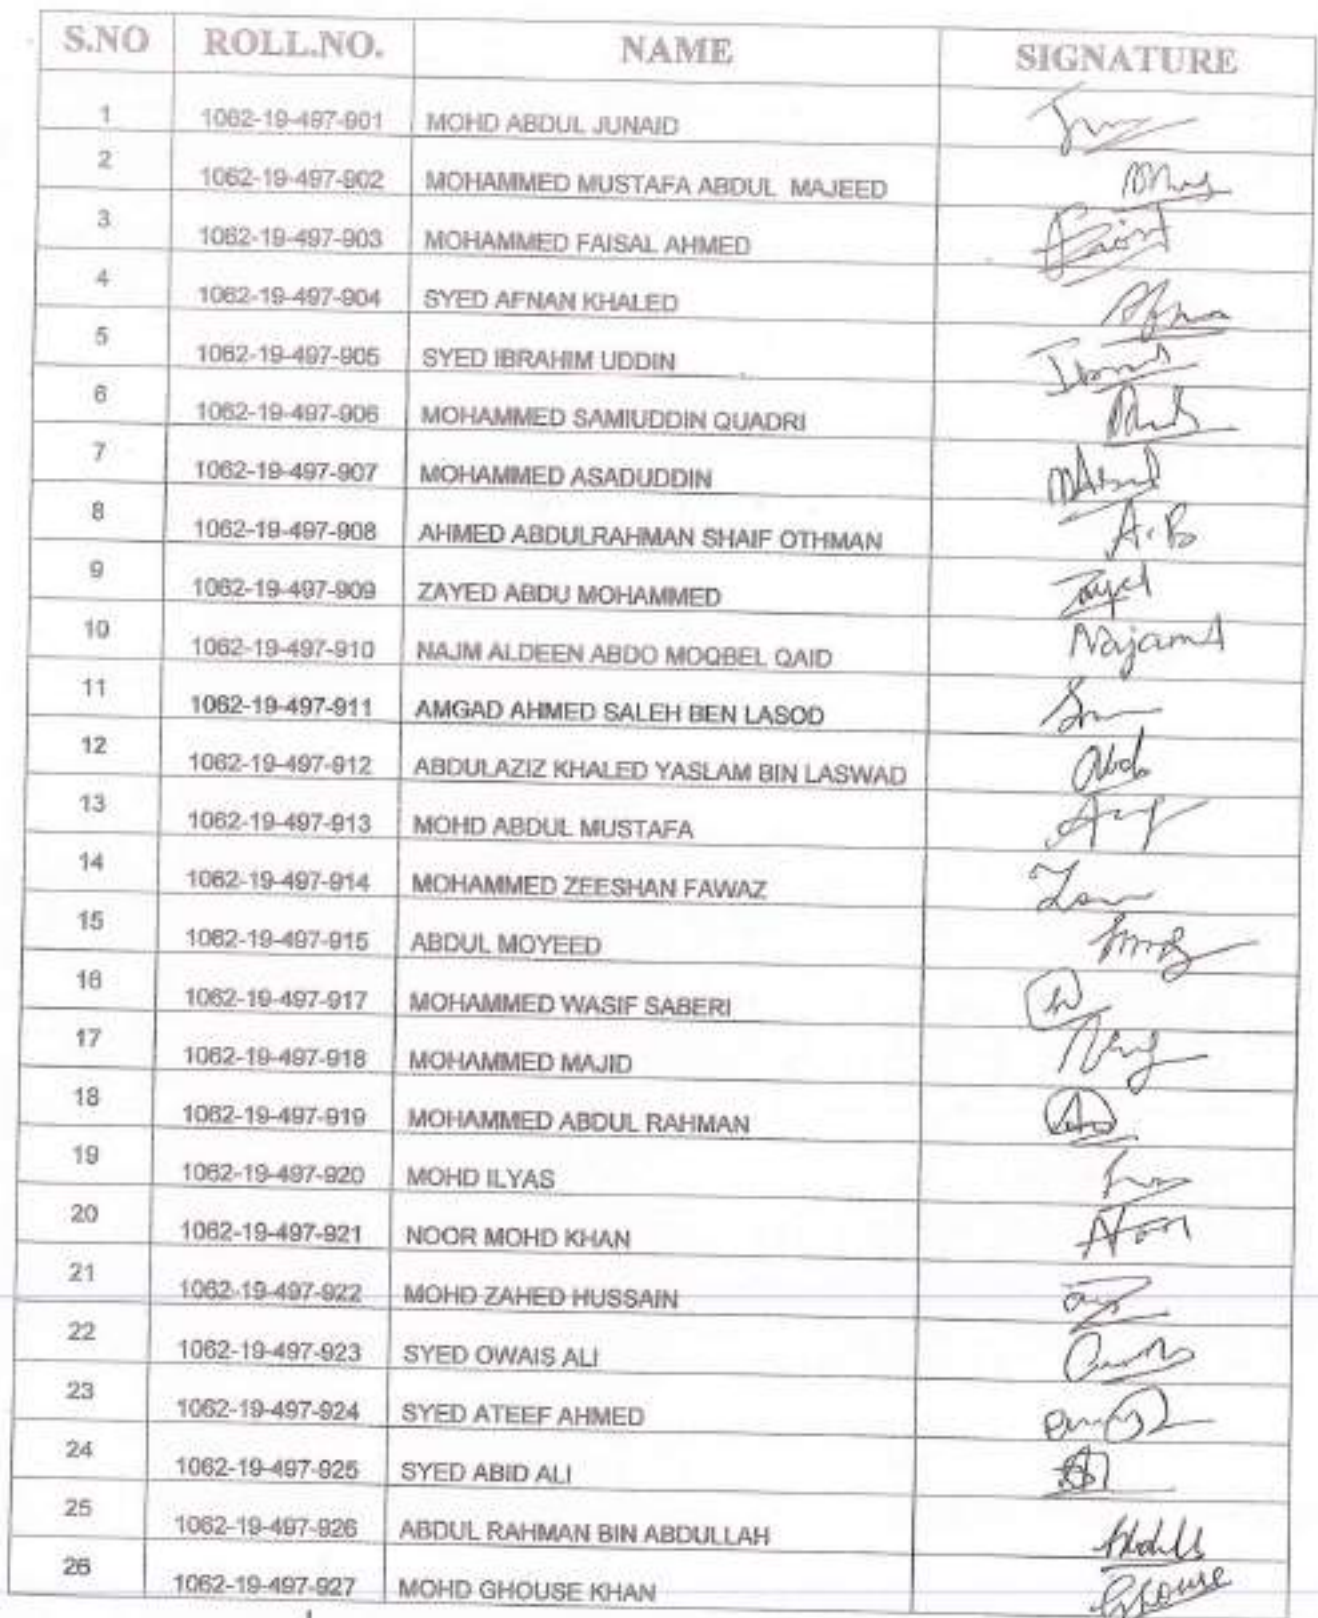 S.NO ROLL.NO. NAME SIGNATURE
1 1062-19-497-901 MOHD ABDUL JUNAID
2 1062-19-497-902 MOHAMMED MUSTAFA ABDUL MAJEED
3 1062-19-497-903 MOHAMMED FAISAL AHMED
4 1062-19-497-904 SYED AFNAN KHALED
5 1062-19-497-905 SYED IBRAHIM UDDIN
6 1062-19-497-906 MOHAMMED SAMIUDDIN QUADRI
7 1062-19-497-907 MOHAMMED ASADUDDIN
8 1062-19-497-908 AHMED ABDULRAHMAN SHAIF OTHMAN A.B
9 1062-19-497-909 ZAYED ABDU MOHAMMED Zayed
10 1062-19-497-910 NAJM ALDEEN ABDO MOQBEL QAID
11 1062-19-497-911 AMGAD AHMED SALEH BEN LASOD
12 1062-19-497-912 ABDULAZIZ KHALED YASLAM BIN LASWAD
13 1062-19-497-913 MOHD ABDUL MUSTAFA
14 1062-19-497-914 MOHAMMED ZEESHAN FAWAZ
15 1062-19-497-915 ABDUL MOYEED
16 1062-19-497-917 MOHAMMED WASIF SABERI
17 1062-19-497-918 MOHAMMED MAJID
18 1062-19-497-919 MOHAMMED ABDUL RAHMAN
19 1062-19-497-920 MOHD ILYAS
20 1062-19-497-921 NOOR MOHD KHAN
21 1062-19-497-922 MOHD ZAHED HUSSAIN
22 1062-19-497-923 SYED OWAIS ALI
23 1062-19-497-924 SYED ATEEF AHMED
24 1062-19-497-925 SYED ABID ALI
25 1062-19-497-926 ABDUL RAHMAN BIN ABDULLAH
26 1062-19-497-927 MOHD GHOUSE KHAN Ghouse